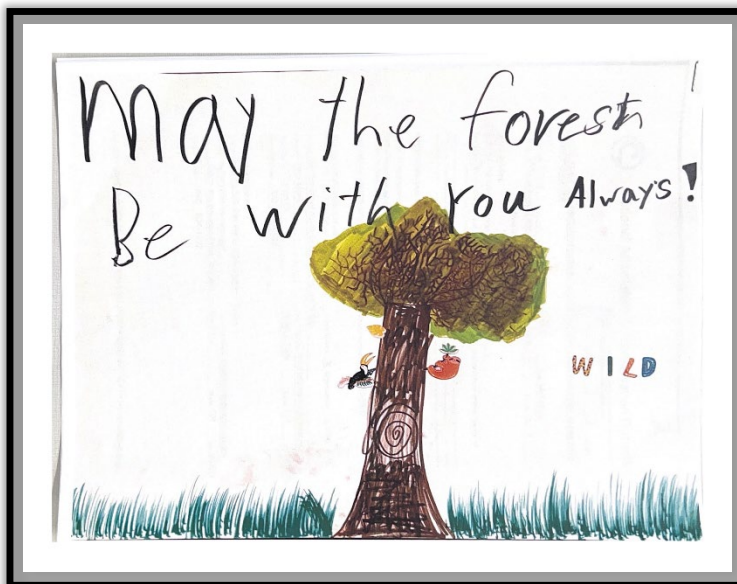 May the forest
Be with you Always!
WILD